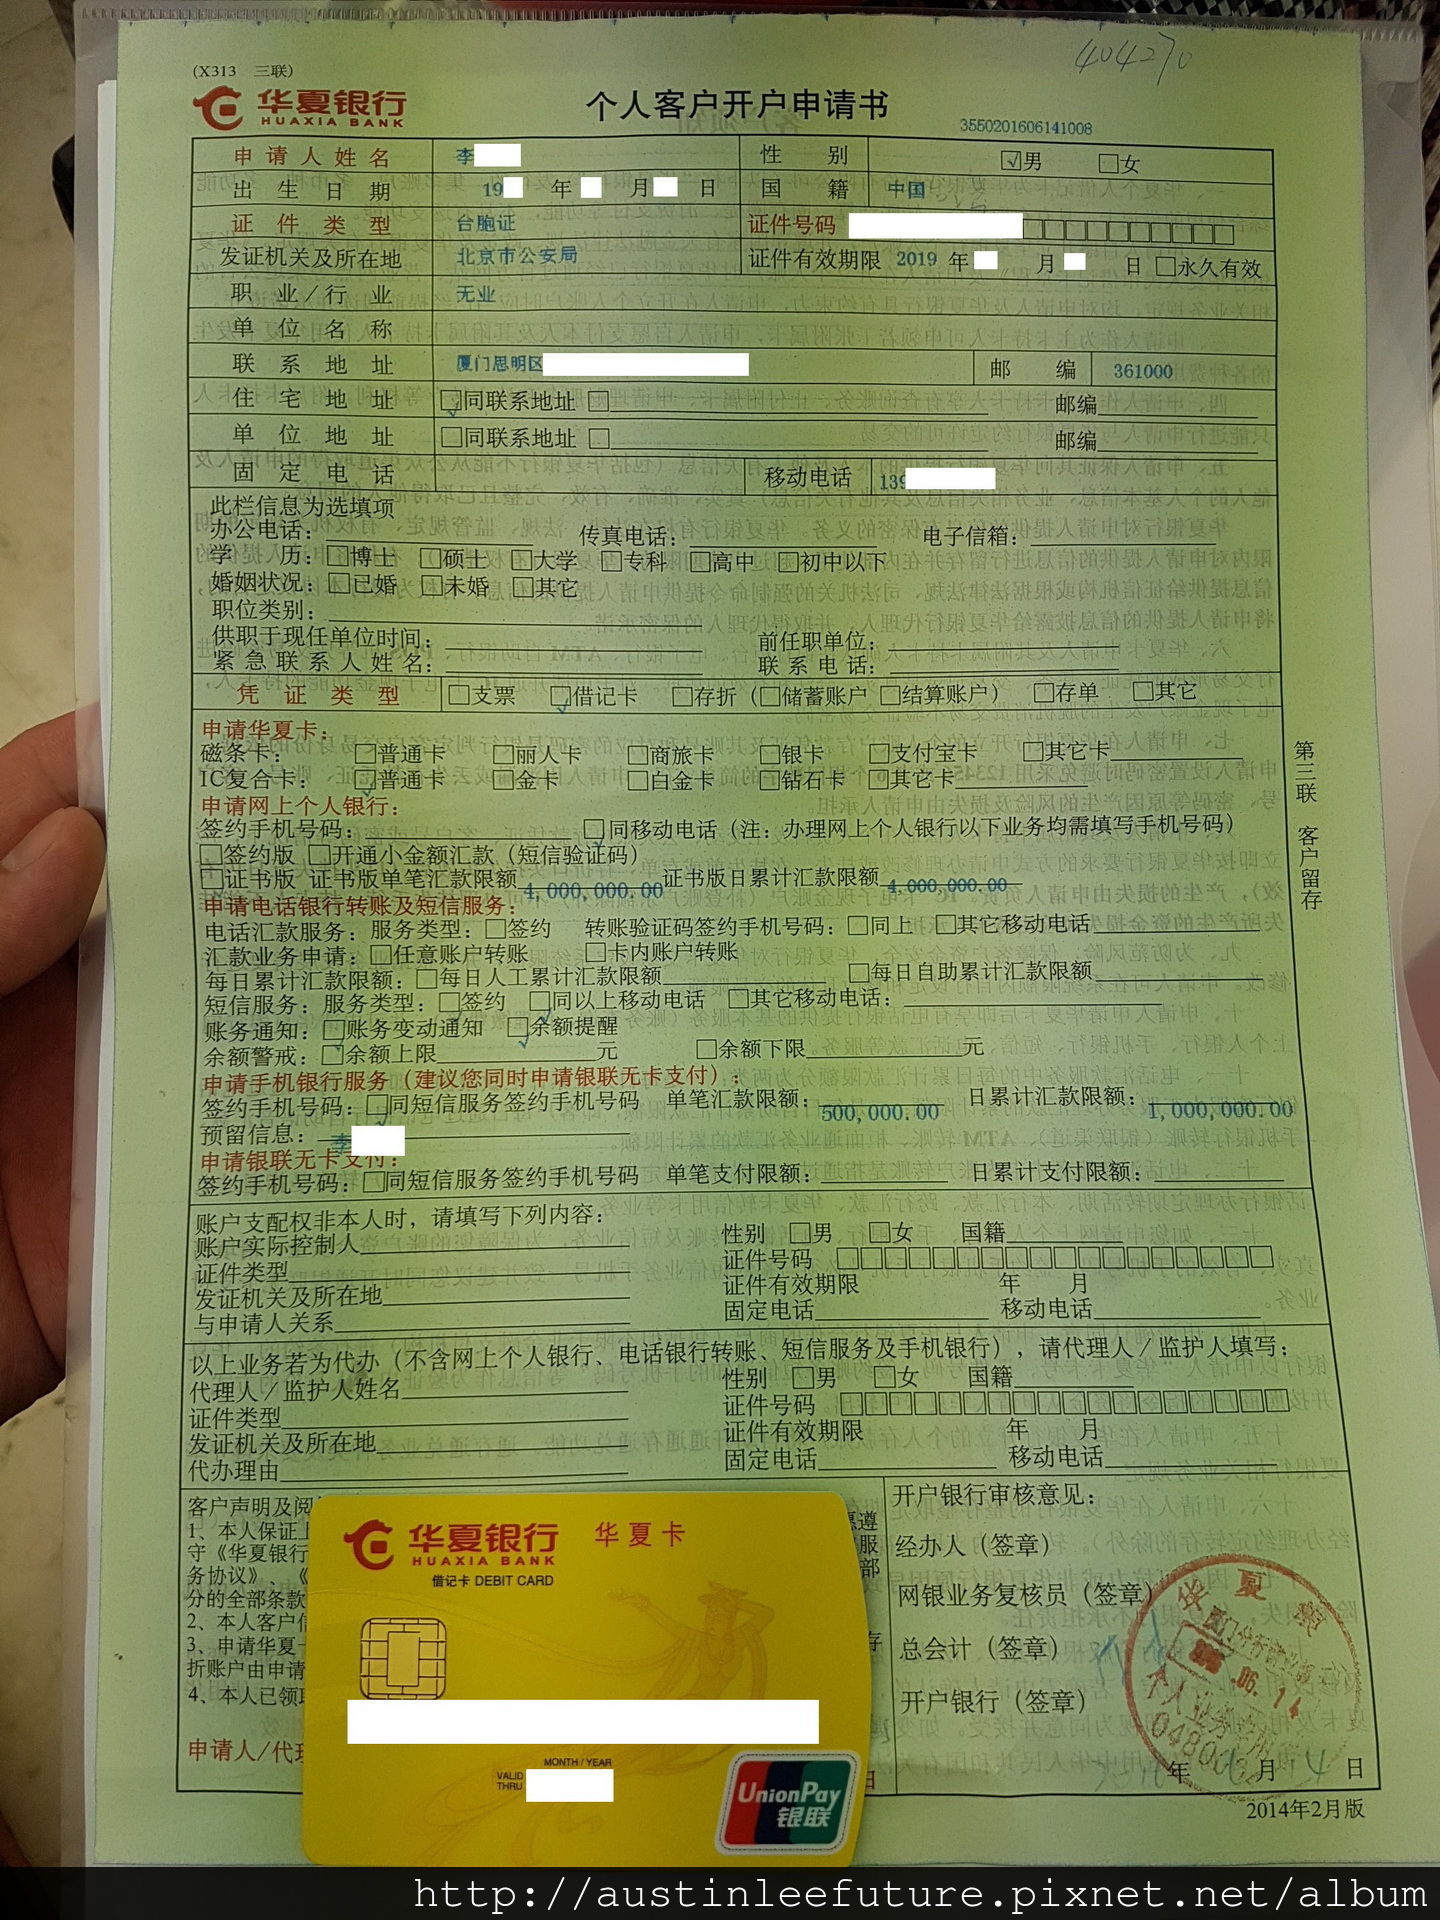 404270
(X313 三联)
华夏银行
HUAXIA BANK
个人客户开户申请书
3550201606141008
申请人姓名 李 性别 ☑男 □女
出生日期 19 年 月 日 国籍 中国
证件类型 台胞证 证件号码
发证机关及所在地 北京市公安局 证件有效期限 2019 年 月 日 □永久有效
职业/行业 无业
单位名称
联系地址 厦门思明区 邮编 361000
住宅地址 ☑同联系地址 □ 邮编
单位地址 □同联系地址 □ 邮编
固定电话 移动电话 139
此栏信息为选填项
办公电话: 传真电话: 电子信箱:
学历: □博士 □硕士 □大学 □专科 □高中 □初中以下
婚姻状况: □已婚 □未婚 □其它
职位类别:
供职于现任单位时间: 前任职单位:
紧急联系人姓名: 联系电话:
凭证类型 □支票 ☑借记卡 □存折(□储蓄账户 □结算账户) □存单 □其它
申请华夏卡:
磁条卡: □普通卡 □丽人卡 □商旅卡 □银卡 □支付宝卡 □其它卡
IC复合卡: ☑普通卡 □金卡 □白金卡 □钻石卡 □其它卡
申请网上个人银行:
签约手机号码: ☑同移动电话(注:办理网上个人银行以下业务均需填写手机号码)
□签约版 □开通小金额汇款(短信验证码)
□证书版 证书版单笔汇款限额 4,000,000.00 证书版日累计汇款限额 4,000,000.00
申请电话银行转账及短信服务:
电话汇款服务: 服务类型: □签约 转账验证码签约手机号码: □同上 □其它移动电话
汇款业务申请: □任意账户转账 □卡内账户转账
每日累计汇款限额: □每日人工累计汇款限额 □每日自助累计汇款限额
短信服务: 服务类型: ☑签约 ☑同以上移动电话 □其它移动电话:
账务通知: ☑账务变动通知 ☑余额提醒
余额警戒: □余额上限 元 □余额下限 元
申请手机银行服务(建议您同时申请银联无卡支付):
签约手机号码: ☑同短信服务签约手机号码 单笔汇款限额: 500,000.00 日累计汇款限额: 1,000,000.00
预留信息: 李
申请银联无卡支付:
签约手机号码: □同短信服务签约手机号码 单笔支付限额: 日累计支付限额:
账户支配权非本人时,请填写下列内容:
账户实际控制人 性别 □男 □女 国籍
证件类型 证件号码
发证机关及所在地 证件有效期限 年 月
与申请人关系 固定电话 移动电话
以上业务若为代办(不含网上个人银行、电话银行转账、短信服务及手机银行),请代理人/监护人填写:
代理人/监护人姓名 性别 □男 □女 国籍
证件类型 证件号码
发证机关及所在地 证件有效期限 年 月
代办理由 固定电话 移动电话
第三联 客户留存
客户声明及阅
1、本人保证上
守《华夏银行
务协议》、《
分的全部条款
2、本人客户信
3、申请华夏
折账户由申请
4、本人已领取
申请人/代理
开户银行审核意见:
经办人(签章)
网银业务复核员(签章)
总会计(签章)
开户银行(签章)
年 月 日
2014年2月版
华夏银行
HUAXIA BANK
华夏卡
借记卡 DEBIT CARD
MONTH / YEAR
VALID THRU
UnionPay
银联
http://austinleefuture.pixnet.net/album